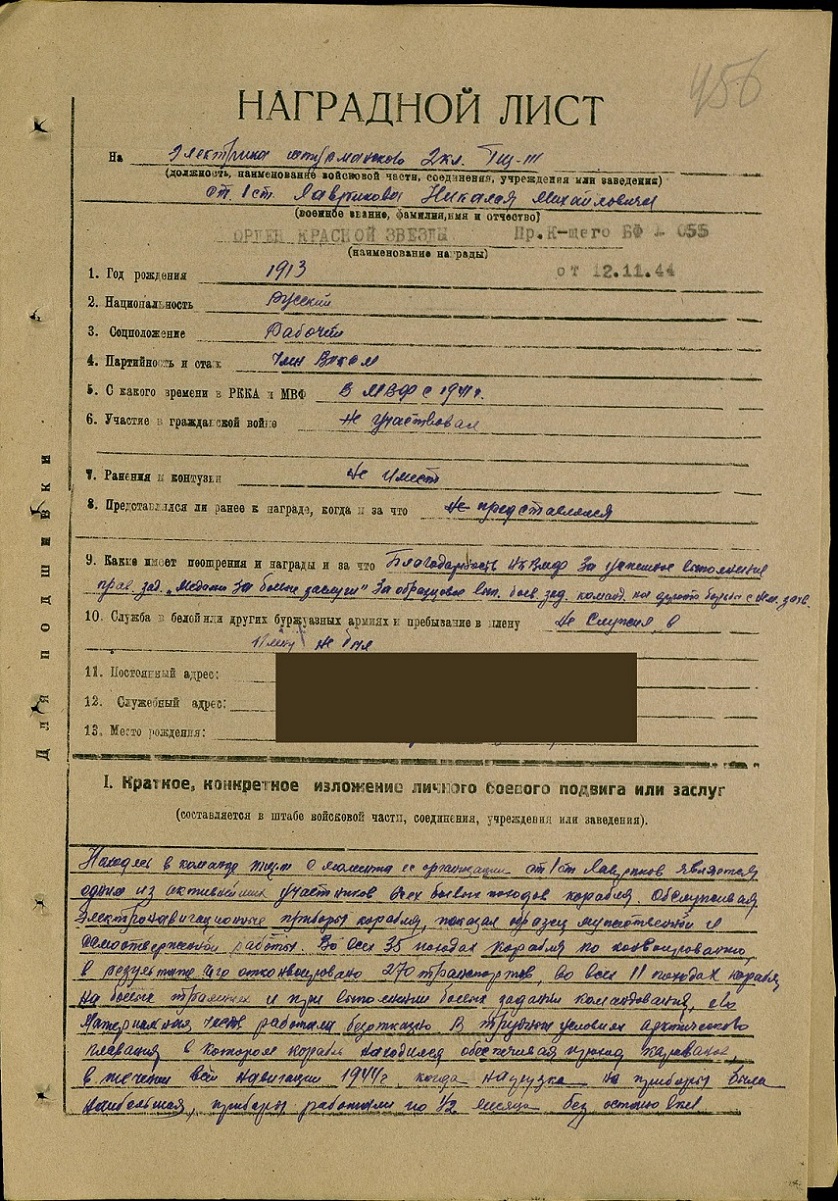 456
НАГРАДНОЙ ЛИСТ
На Электрика штурманского 2кл. Тщ-111
(должность, наименование войсковой части, соединения, учреждения или заведения)
ст. 1 ст. Лаврикова Николая Михайловича
(военное звание, фамилия, имя и отчество)
ОРДЕН КРАСНОЙ ЗВЕЗДЫ Пр.К-щего БФ № 055
(наименование награды)
от 12.11.44
1. Год рождения 1913
2. Национальность Русский
3. Соцположение Рабочий
4. Партийность и стаж Член
5. С какого времени в РККА и МВФ В МВФ с 1941г.
6. Участие в гражданской войне Не участвовал
7. Ранения и контузии Не имеет
8. Представлялся ли ранее к награде, когда и за что Не представлялся
9. Какие имеет поощрения и награды и за что Благодарность НКВМФ За успешное выполнение
прав. зад. „Медаль За боевые заслуги" За образцовое вып. боев. зад. команд. на фронте борьбы с нем. захв.
10. Служба в белой или других буржуазных армиях и пребывание в плену Не Служил, в
плену не был
11. Постоянный адрес:
12. Служебный адрес:
13. Место рождения:
Для подшивки
I. Краткое, конкретное изложение личного боевого подвига или заслуг
(составляется в штабе войсковой части, соединения, учреждения или заведения).
Находясь в команде с момента ее организации ст 1 ст является
одним из активнейших участников всех боевых походов корабля. Обслуживая
электронавигационные приборы корабля, показал образец мужественной и
самоотверженной работы. Во всех 35 походах корабля по конвоированию,
в результате чего отконвоировано 270 транспортов, во всех 11 походах корабля
на боевых тралениях и при выполнении боевых заданий командования, его
материальная часть работали безотказно. В трудных условиях арктического
плавания в котором корабль находился обеспечивая проход караванов,
в течении всей навигации 1944г. когда нагрузка на приборы была
наибольшая, приборы работали по 1/2 месяца без остановки